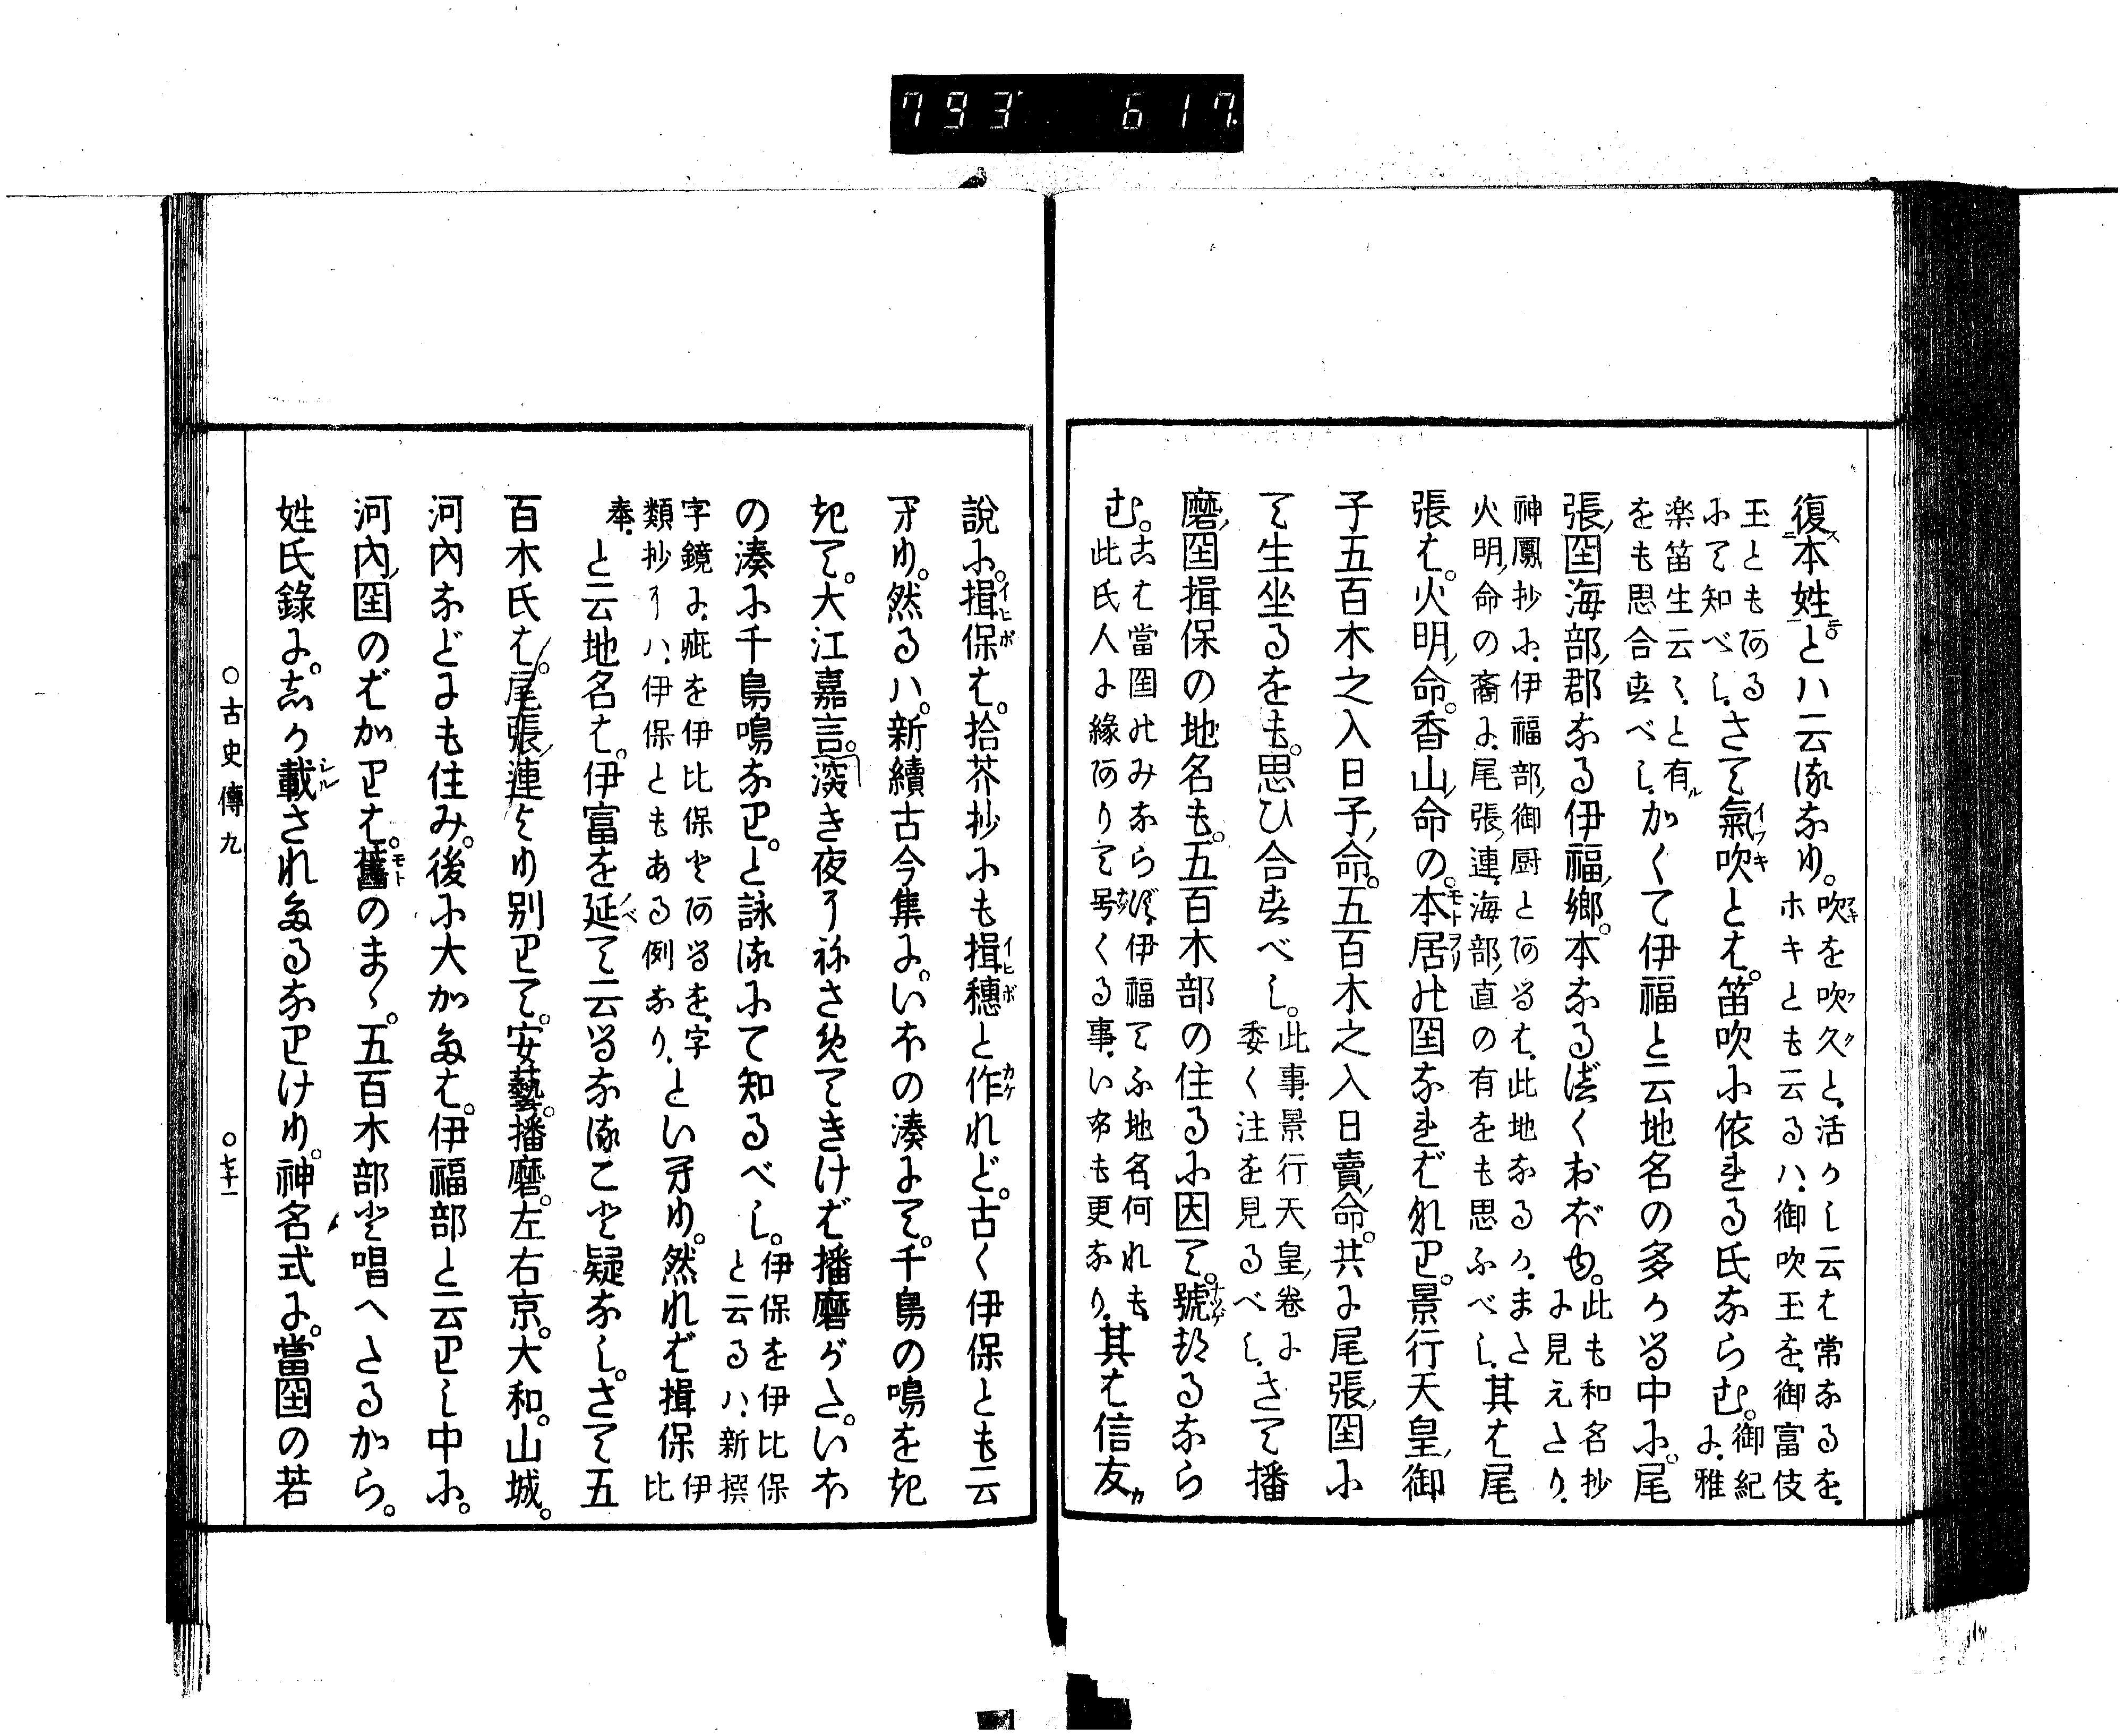 793 617.
復本姓とハ云るなり。吹を吹久と活かし云は常なるを、
ホキとも云るハ、御吹玉を、御富伎
玉ともある
にて知べし。さて氣吹とは。笛吹に依れる氏ならむ。御紀
に、雅
楽笛生云々と有
をも思合すべし。かくて伊福と云地名の多かる中に。尾
張國海部郡なる伊福郷。本なるべくおぼゆ。此も和名抄
に見えたり。
神鳳抄に、伊福部御厨とあるは、此地なるか、また
火明命の裔に、尾張連、海部直の有をも思ふべし。其は尾
張は。火明命。香山命の。本居の國なればなり。景行天皇御
子五百木之入日子命。五百木之入日賣命。共に尾張國に
て生坐るをも。思ひ合すべし。此事、景行天皇卷に
委く注を見るべし。さて播
磨國揖保の地名も。五百木部の住るに因て。號たるなら
む。こは當國のみならず、伊福てふ地名何れも、
此氏人に緣ありて号くる事、いふも更なり。其は信友が
說に。揖保は。拾芥抄にも揖穗と作れど。古く伊保とも云
へり。然るハ。新續古今集に。いほの湊にて。千鳥の鳴をき
きて。大江嘉言。深き夜にねざめてきけば播磨がた。いほ
の湊に千鳥鳴なり。と詠るにて知るべし。伊保を伊比保
と云るハ、新撰
字鏡に、疣を伊比保とあるを、字
類抄にハ、伊保ともある例なり、といへり。然れば揖保伊
比
奉と云地名は。伊富を延て云るなること疑なし。さて五
百木氏は。尾張連より別りて。安藝。播磨。左右京。大和。山城。
河內などにも住み。後に大かたは。伊福部と云りし中に。
河內國のばかりは。舊のまゝ。五百木部と唱へたるから。
姓氏錄に。志か載されたるなりけり。神名式に。當國の若
○古史傳九 ○七十一